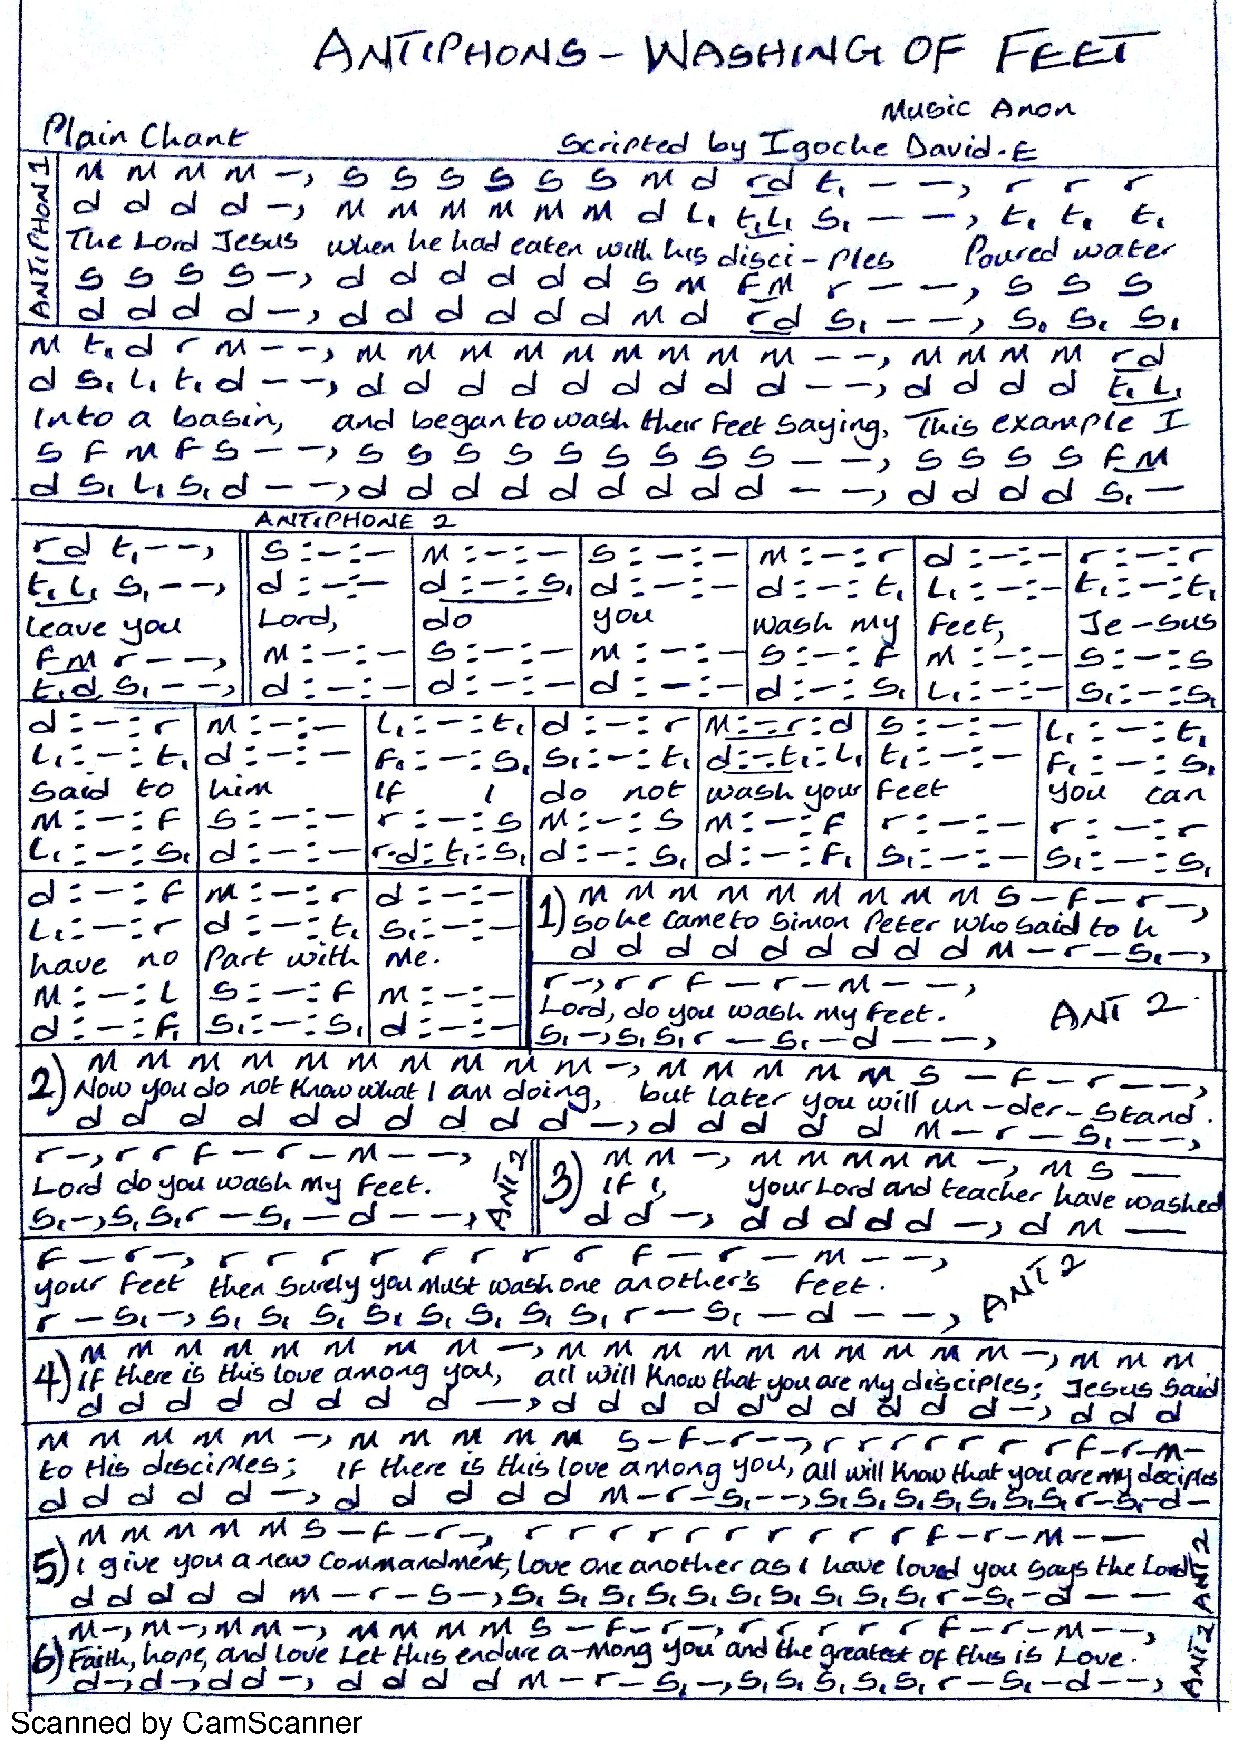 ANTIPHONS - WASHING OF FEET
Music Anon
Plain Chant
Scripted by Igoche David.E
ANTIPHON 1
M M M M -, S S S S S S M d rd t₁ - -, r r r
d d d d -, M M M M M M d L₁ t₁L₁ S₁ - - -, t₁ t₁ t₁
The Lord Jesus when he had eaten with his disci-ples Poured water
S S S S -, d d d d d d S M FM r - - -, S S S
d d d d -, d d d d d d M d rd S₁ - - -, S₁ S₁ S₁
M t₁ d r M - - -, M M M M M M M M M - - -, M M M M rd
d S₁ L₁ t₁ d - - -, d d d d d d d d d - - -, d d d d t₁L₁
Into a basin, and began to wash their feet saying, This example I
S F M F S - - -, S S S S S S S S S - - -, S S S S FM
d S₁ L₁ S₁ d - - -, d d d d d d d d d - - -, d d d d S₁ -
ANTIPHONE 2
rd t₁ - -, S:-:- M:-:- S:-:- M:-:r d:-:- r:-:r
t₁L₁ S₁ - -, d:-:- d:-:S₁ d:-:- d:-:t₁ L₁:-:- t₁:-:t₁
Leave you Lord, do you wash my feet, Je-sus
FM r - - -, M:-:- S:-:- M:-:- S:-:F M:-:- S:-:S
t₁d S₁ - - -, d:-:- d:-:- d:-:- d:-:S₁ L₁:-:- S₁:-:S₁
d:-:r M:-:- L₁:-:t₁ d:-:r M:-r:d S:-:- L₁:-:t₁
L₁:-:t₁ d:-:- F₁:-:S₁ S₁:-:t₁ d:-t₁:L₁ t₁:-:- F₁:-:S₁
Said to him If I do not wash your feet you can
M:-:F S:-:- r:-:S M:-:S M:-:F r:-:- r:-:r
L₁:-:S₁ d:-:- r-d:t₁:S₁ d:-:S₁ d:-:F₁ S₁:-:- S₁:-:S₁
d:-:F M:-:r d:-:-
L₁:-:r d:-:t₁ S₁:-:-
have no Part with me.
M:-:L S:-:F M:-:-
d:-:F₁ S₁:-:S₁ d:-:-
1) M M M M M M M M M S - F - r -,
So he came to Simon Peter who said to h
d d d d d d d d d M - r - S₁ -,
r -, r r F - r - M - -,
Lord, do you wash my feet. ANT 2
S₁ -, S₁ S₁ r - S₁ - d - - -,
2) M M M M M M M M M M -, M M M M M S - F - r - - -,
Now you do not know what I am doing, but later you will un-der-stand.
d d d d d d d d d d -, d d d d d M - r - S₁ - - -,
r -, r r F - r - M - - -,
Lord do you wash my feet. ANT 2
S₁ -, S₁ S₁ r - S₁ - d - - -,
3) M M -, M M M M M -, M S -
If I, your Lord and teacher have washed
d d -, d d d d d -, d M -
F - r -, r r r r r r r r F - r - M - -,
your feet then surely you must wash one another's feet. ANT 2
r - S₁ -, S₁ S₁ S₁ S₁ S₁ S₁ S₁ S₁ r - S₁ - d - - -,
4) M M M M M M M M -, M M M M M M M M M M -, M M M
If there is this love among you, all will know that you are my disciples; Jesus said
d d d d d d d d -, d d d d d d d d d d -, d d d
M M M M M -, M M M M M S - F - r - -, r r r r r r r F - r - M -
to His disciples; If there is this love among you, all will know that you are my disciples
d d d d d -, d d d d d M - r - S₁ - -, S₁ S₁ S₁ S₁ S₁ S₁ S₁ r - S₁ - d -
5) M M M M M S - F - r -, r r r r r r r r r r F - r - M - -
I give you a new commandment, love one another as I have loved you says the Lord ANT 2
d d d d d M - r - S -, S₁ S₁ S₁ S₁ S₁ S₁ S₁ S₁ S₁ S₁ r - S₁ - d - -
6) M -, M -, M M -, M M M M S - F - r -, r r r r r F - r - M - -,
Faith, hope, and love Let this endure a-mong you and the greatest of this is Love. ANT 2
d -, d -, d d -, d d d d M - r - S₁ -, S₁ S₁ S₁ S₁ S₁ r - S₁ - d - -,
Scanned by CamScanner